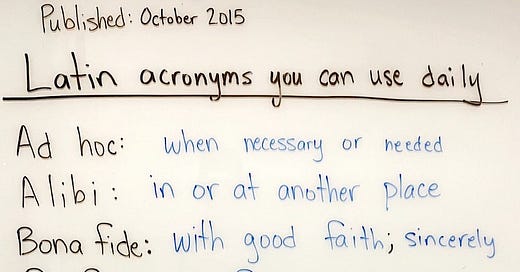 Published: October 2015
Latin acronyms you can use daily
Ad hoc: when necessary or needed
Alibi: in or at another place
Bona fide: with good faith; sincerely